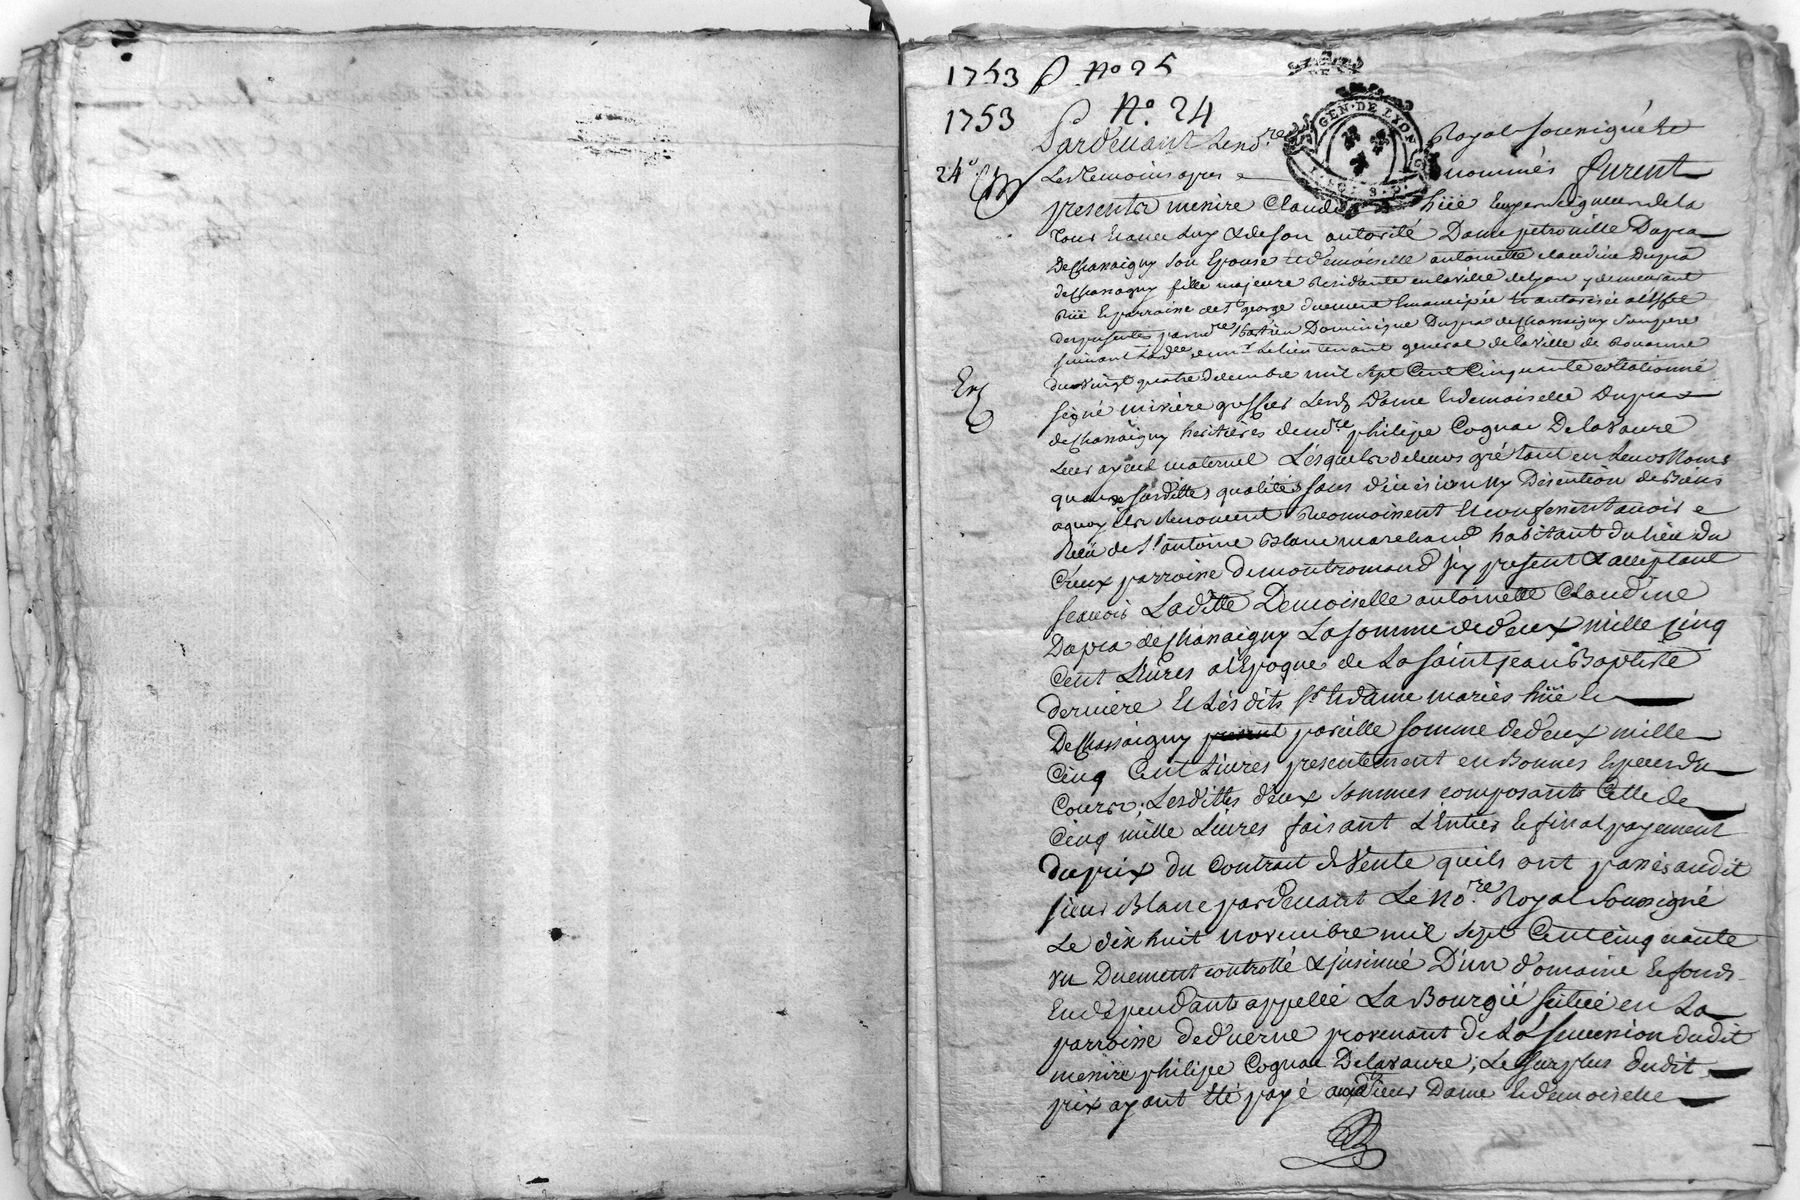 1753 P. No 25
1753 No. 24
GEN. DE LYON
Pardevant Le no.re Royal soussigné et
24e Les Temoins apres nommés furent
presents messire Claude hüe ecuyer seigneur de la
Tour et avec luy et de son autorité Dame petronille Dapra
De Chassaigny son Epouse et demoiselle antoinette claudine Dapra
de Chassaigny fille majeure Residante en la ville de Lyon y demeurant
Rüe et parroisse de St george duement Emancipée et autorisée a l'effet
des presentes par mre Dominique Dapra de Chassaigny son pere
suivant de mr le lieutenant general de la ville de Rouanne
du vingt quatre decembre mil sept Cent Cinquante collationné
signé greffier Dame et demoiselle Dapra
de Chassaigny heritieres dud. philipe Cognac De lavaure
Leur ayeul maternel Lesquels de leurs gré tant en Leurs Noms
quaux susdittes qualités sans division ny Discution de Biens
aquoy ils Renoncent Reconnoissent et confessent avoir
Reçu de Sr antoine Blanc marchand habitant du lieu du
Creux parroisse de montromand icy present et acceptant
scavoir Laditte Demoiselle antoinette Claudine
Dapra de Chassaigny La somme de deux mille cinq
Cent Livres a l'Epoque de La saint jean Baptiste
derniere et Lesdits sr et dame mariés hüe et
De Chassaigny pareille somme de deux mille
Cinq Cent Livres presentement en Bonnes Especes du
Cours, Lesdittes deux sommes composants Celle de
Cinq mille Livres faisant L'Entier et final payement
du prix du Contrait de Vente quils ont passés audit
sieur Blanc pardevant Le No.re Royal Soussigné
Le dix huit novembre mil sept Cent cinquante
un Duement controllé et insinué D'un domaine et fonds
En dependant appellé La Bourgié scitué en La
parroisse de duerne provenant de La Succession dudit
messire philipe Cognac De lavaure; Le surplus dudit
prix ayant Eté payé auxd. sieur Dame et demoiselle